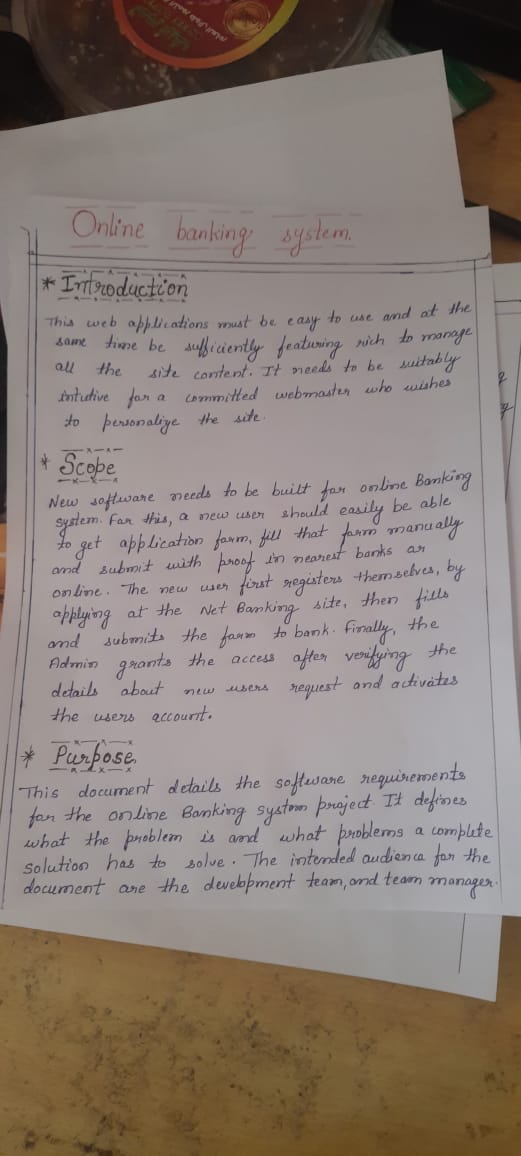 Online banking system.
* Introduction
This web applications must be easy to use and at the
same time be sufficiently featuring rich to manage
all the site content. It needs to be suitably
intutive for a committed webmaster who wishes
to personalize the site.
* Scope
New software needs to be built for online Banking
system. For this, a new user should easily be able
to get application form, fill that form manually
and submit with proof in nearest banks or
online. The new user first registers themselves, by
applying at the Net Banking site, then fills
and submits the form to bank. Finally, the
Admin grants the access after verifying the
details about new users request and activates
the users account.
* Purpose
This document details the software requirements
for the online Banking system project. It defines
what the problem is and what problems a complete
solution has to solve. The intended audience for the
document are the development team, and team manager.